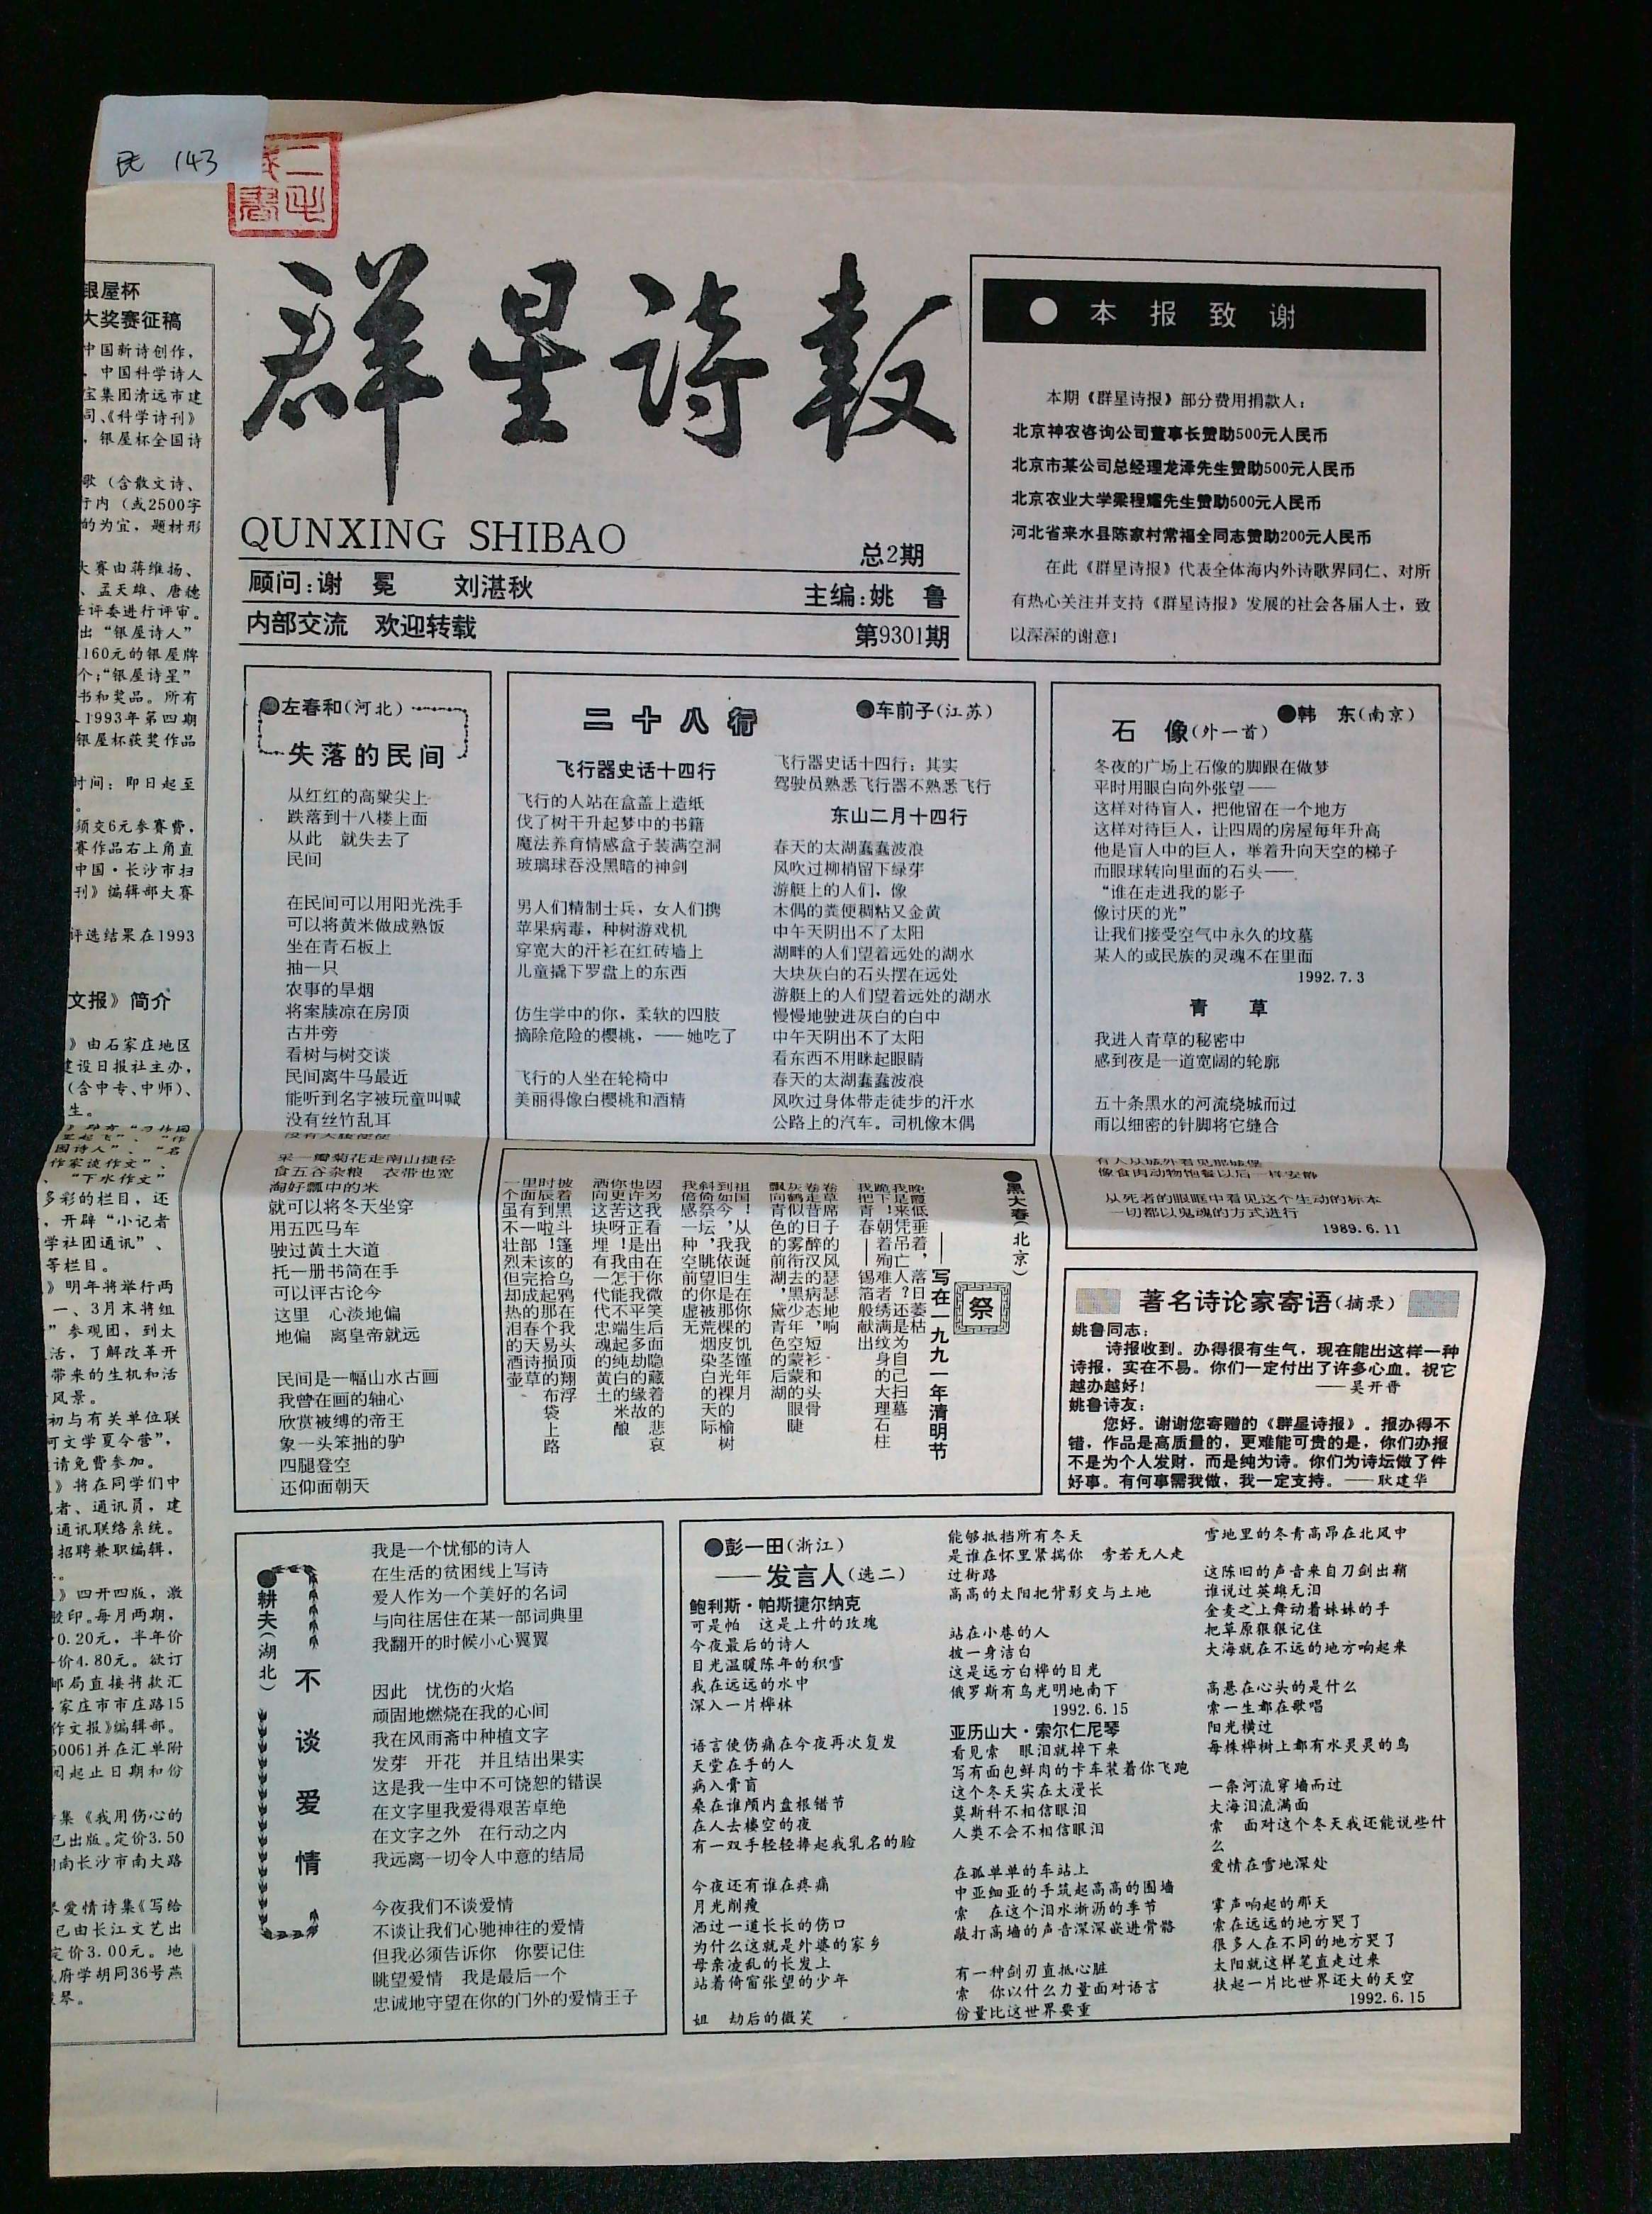 民 143
群星诗報
QUNXING SHIBAO
总2期
顾问:谢 冕 刘湛秋
主编:姚 鲁
内部交流 欢迎转载
第9301期
● 本报致谢
本期《群星诗报》部分费用捐款人:
北京神农咨询公司董事长赞助500元人民币
北京市某公司总经理龙泽先生赞助500元人民币
北京农业大学梁程耀先生赞助500元人民币
河北省来水县陈家村常福全同志赞助200元人民币
在此《群星诗报》代表全体海内外诗歌界同仁、对所
有热心关注并支持《群星诗报》发展的社会各届人士,致
以深深的谢意!
银屋杯
大奖赛征稿
中国新诗创作,
,中国科学诗人
宝集团清远市建
司、《科学诗刊》
,银屋杯全国诗
歌(含散文诗、
行内(或2500字
的为宜,题材形
大赛由蒋维扬、
、孟天雄、唐德
任评委进行评审。
出“银屋诗人”
160元的银屋牌
个;“银屋诗星”
书和奖品。所有
1993年第四期
银屋杯获奖作品
时间:即日起至
须交6元参赛费,
赛作品右上角直
中国·长沙市扫
刊》编辑部大赛
评选结果在1993
文报》简介
》由石家庄地区
建设日报社主办,
(含中专、中师)、
生。
园诗人”、“名
作家谈作文”、
、“下水作文”
多彩的栏目,还
,开辟“小记者
学社团通讯”、
等栏目。
》明年将举行两
一、3月末将组
”参观团,到大
活,了解改革开
带来的生机和活
风景。
初与有关单位联
可文学夏令营”,
请免费参加。
》将在同学们中
者、通讯员,建
通讯联络系统。
招聘兼职编辑,
》四开四版,激
胶印。每月两期,
0.20元,半年价
价4.80元。欲订
邮局直接将款汇
家庄市市庄路15
作文报》编辑部。
50061并在汇单附
同起止日期和份
集《我用伤心的
已出版。定价3.50
南长沙市南大路
爱情诗集《写给
已由长江文艺出
定价3.00元。地
府学胡同36号燕
琴。
●左春和(河北)
失落的民间
从红红的高粱尖上
跌落到十八楼上面
从此 就失去了
民间
在民间可以用阳光洗手
可以将黄米做成熟饭
坐在青石板上
抽一只
农事的旱烟
将案牍凉在房顶
古井旁
看树与树交谈
民间离牛马最近
能听到名字被玩童叫喊
没有丝竹乱耳
采一瓣菊花走南山捷径
食五谷杂粮 衣带也宽
淘好瓢中的米
就可以将冬天坐穿
用五匹马车
驶过黄土大道
托一册书简在手
可以评古论今
这里 心淡地偏
地偏 离皇帝就远
民间是一幅山水古画
我曾在画的轴心
欣赏被缚的帝王
象一头笨拙的驴
四腿登空
还仰面朝天
二十八行
●车前子(江苏)
飞行器史话十四行
飞行的人站在盒盖上造纸
伐了树干升起梦中的书籍
魔法养育情感盒子装满空洞
玻璃球吞没黑暗的神剑
男人们精制士兵,女人们携
苹果病毒,种树游戏机
穿宽大的汗衫在红砖墙上
儿童撬下罗盘上的东西
仿生学中的你,柔软的四肢
摘除危险的樱桃,——她吃了
飞行的人坐在轮椅中
美丽得像白樱桃和酒精
飞行器史话十四行:其实
驾驶员熟悉飞行器不熟悉飞行
东山二月十四行
春天的太湖蠢蠢波浪
风吹过柳梢留下绿芽
游艇上的人们,像
木偶的粪便稠粘又金黄
中午天阴出不了太阳
湖畔的人们望着远处的湖水
大块灰白的石头摆在远处
游艇上的人们望着远处的湖水
慢慢地驶进灰白的白中
中午天阴出不了太阳
看东西不用眯起眼睛
春天的太湖蠢蠢波浪
风吹过身体带走徒步的汗水
公路上的汽车。司机像木偶
石 像(外一首)
●韩 东(南京)
冬夜的广场上石像的脚跟在做梦
平时用眼白向外张望——
这样对待盲人,把他留在一个地方
这样对待巨人,让四周的房屋每年升高
他是盲人中的巨人,举着升向天空的梯子
而眼球转向里面的石头——
“谁在走进我的影子
像讨厌的光”
让我们接受空气中永久的坟墓
某人的或民族的灵魂不在里面
1992.7.3
青 草
我进入青草的秘密中
感到夜是一道宽阔的轮廓
五十条黑水的河流绕城而过
雨以细密的针脚将它缝合
有人从城外看见那城堡
像食肉动物饱餐以后一样安静
从死者的眼眶中看见这个生动的标本
一切都以鬼魂的方式进行
1989.6.11
●黑大春(北京)
祭
——写在一九九一年清明节
晚霞低垂着,落日萎枯
我是来凭吊亡人?还是为自己扫墓
跪下!朝着殉难者绣满纹身的大理石柱
我把青春——锡箔般献出
卷草席子的风瑟瑟地响
卷走昔日醉汉的病态,短衫和头骨
灰鹤似的雾衔去黑少年空蒙蒙的眼睫
飘向青色的前湖,黛青色的后湖
祖国!从我诞生在你的饥馑年月
到如今,我依旧是那棵皮茎光裸的榆树
斜倚祭坛,眺望你被荒烟染白的天际
我倍感一种空前的虚无
因为我看出在你微笑后面隐藏着的悲哀
也许这正是由于我平生多劫的缘故
你更苦呀!我怎能不端起纯白的米酿
洒向这块埋有一代代忠魂的黄土
披着黑斗篷的乌鸦在我头顶翔浮
时辰到啦!该拾起那个易损的布袋上路
里面有一部未完成的春天诗草
一个虽不壮烈但却热泪的酒壶
著名诗论家寄语(摘录)
姚鲁同志:
诗报收到。办得很有生气,现在能出这样一种
诗报,实在不易。你们一定付出了许多心血。祝它
越办越好! ——吴开晋
姚鲁诗友:
您好。谢谢您寄赠的《群星诗报》。报办得不
错,作品是高质量的,更难能可贵的是,你们办报
不是为个人发财,而是纯为诗。你们为诗坛做了件
好事。有何事需我做,我一定支持。——耿建华
●耕夫(湖北)
不谈爱情
我是一个忧郁的诗人
在生活的贫困线上写诗
爱人作为一个美好的名词
与向往居住在某一部词典里
我翻开的时候小心翼翼
因此 忧伤的火焰
顽固地燃烧在我的心间
我在风雨斋中种植文字
发芽 开花 并且结出果实
这是我一生中不可饶恕的错误
在文字里我爱得艰苦卓绝
在文字之外 在行动之内
我远离一切令人中意的结局
今夜我们不谈爱情
不谈让我们心驰神往的爱情
但我必须告诉你 你要记住
眺望爱情 我是最后一个
忠诚地守望在你的门外的爱情王子
●彭一田(浙江)
——发言人(选二)
鲍利斯·帕斯捷尔纳克
可是帕 这是上升的玫瑰
今夜最后的诗人
目光温暖陈年的积雪
我在远远的水中
深入一片桦林
语言使伤痛在今夜再次复发
天堂在手的人
病入膏肓
桑在谁颅内盘根错节
在人去楼空的夜
有一双手轻轻捧起我乳名的脸
今夜还有谁在疼痛
月光削瘦
洒过一道长长的伤口
为什么这就是外婆的家乡
母亲凌乱的长发上
站着倚窗张望的少年
姐 劫后的微笑
能够抵挡所有冬天
是谁在怀里紧揣你 旁若无人走
过街路
高高的太阳把背影交与土地
站在小巷的人
披一身洁白
这是远方白桦的目光
俄罗斯有鸟光明地南下
1992.6.15
亚历山大·索尔仁尼琴
看见索 眼泪就掉下来
写有面包鲜肉的卡车装着你飞跑
这个冬天实在太漫长
莫斯科不相信眼泪
人类不会不相信眼泪
在孤单单的车站上
中亚细亚的手筑起高高的围墙
索 在这个泪水淅沥的季节
敲打高墙的声音深深嵌进骨骼
有一种剑刃直抵心脏
索 你以什么力量面对语言
份量比这世界要重
雪地里的冬青高昂在北风中
这陈旧的声音来自刀剑出鞘
谁说过英雄无泪
金麦之上舞动着妹妹的手
把草原狠狠记住
大海就在不远的地方响起来
高悬在心头的是什么
索一生都在歌唱
阳光横过
每株桦树上都有水灵灵的鸟
一条河流穿墙而过
大海泪流满面
索 面对这个冬天我还能说些什
么
爱情在雪地深处
掌声响起的那天
索在远远的地方哭了
很多人在不同的地方哭了
太阳就这样笔直走过来
扶起一片比世界还大的天空
1992.6.15